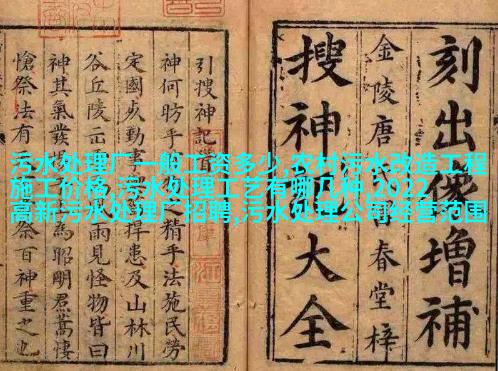 污水处理厂一般工资多少,农村污水改造工程
施工价格,污水处理工艺有哪几种,2022
高新污水处理厂招聘,污水处理公司经营范围
刻出像增補
金陵唐氏春堂梓
搜神大全
引搜神記首
神何昉乎之精乎法施民勞
定國以勤事捍患及山林川
谷丘陵云風雨見怪物皆曰
神其氣發為昭明焄蒿悽
愴祭法有祭百神重之也